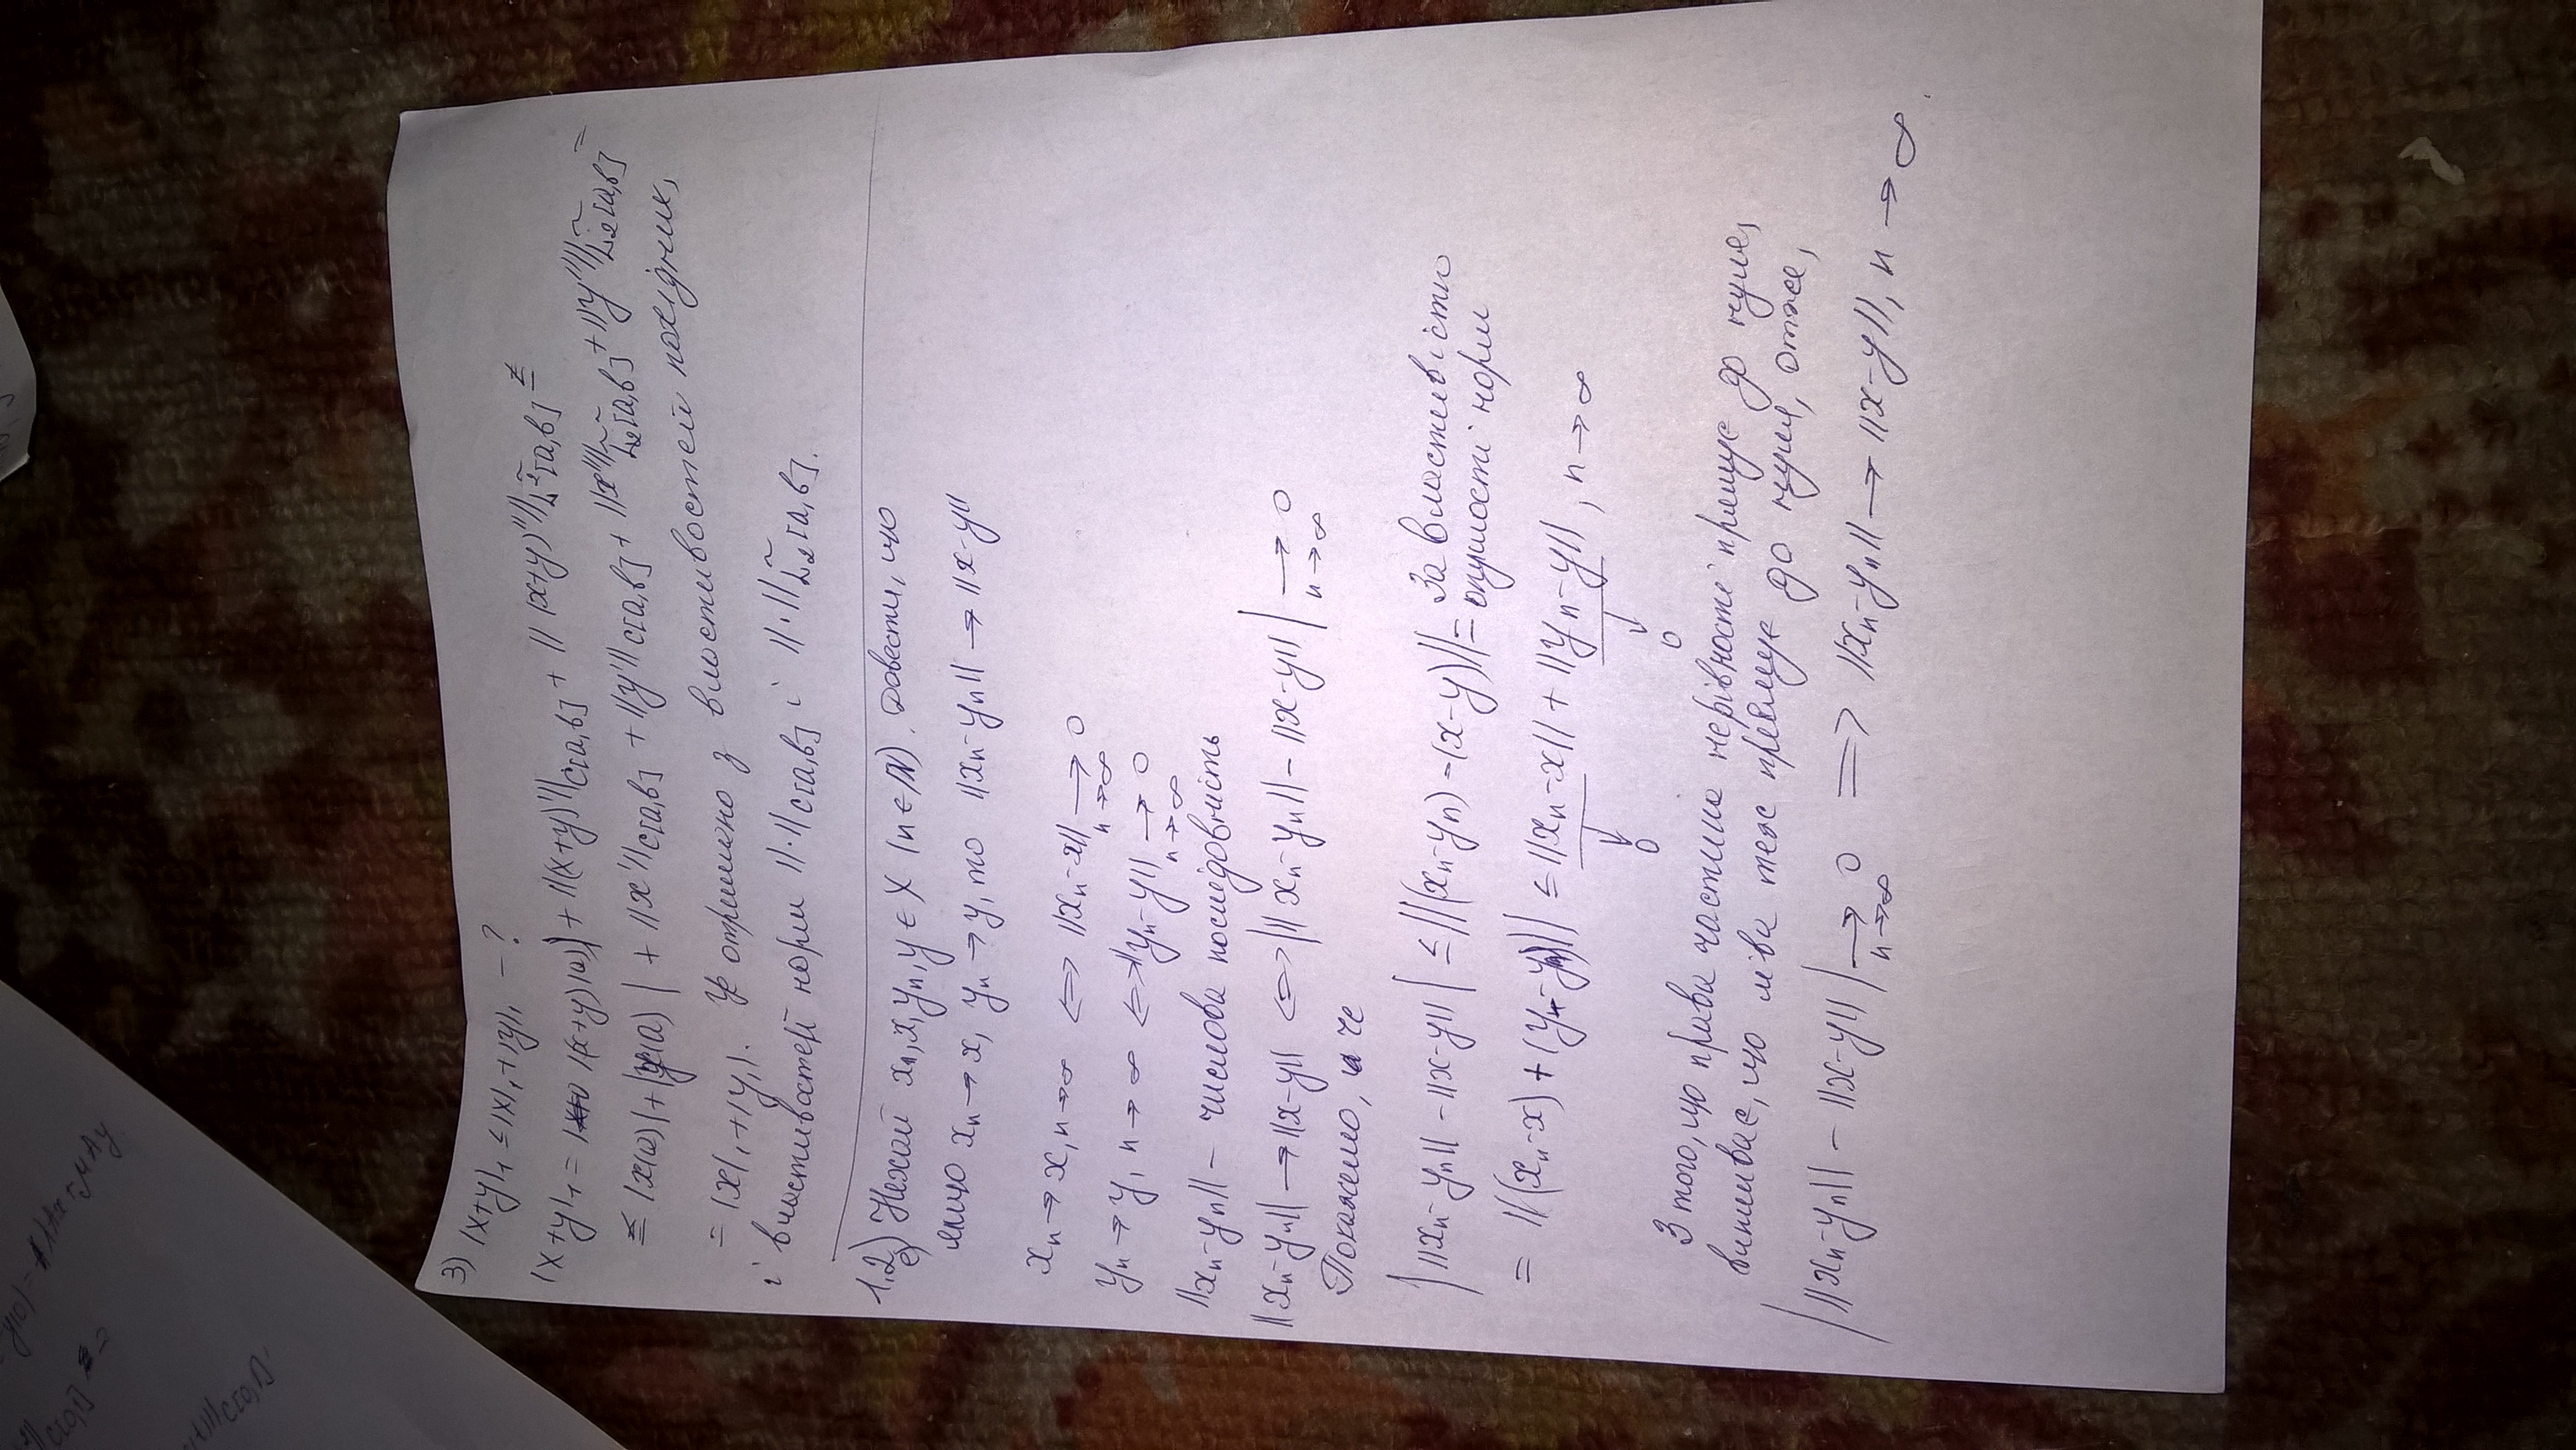 y(0) = λAx + μAy
C[0,1]
C[0,1]
3) |x+y|₁ ≤ |x|₁ + |y|₁ - ?
|x+y|₁ = |(x+y)(a)| + ||(x+y)'||C[a,b] + ||(x+y)''||L̃₂[a,b] ≤
≤ |x(a)| + |y(a)| + ||x'||C[a,b] + ||y'||C[a,b] + ||x''||L̃₂[a,b] + ||y''||L̃₂[a,b] =
= |x|₁ + |y|₁. Це отримано з властивостей похідних,
і властивостей норм ||·||C[a,b] і ||·||L̃₂[a,b].
1.2) Нехай xₙ, x, yₙ, y ∈ X (n ∈ ℕ). Довести, що
якщо xₙ → x, yₙ → y, то ||xₙ - yₙ|| → ||x - y||
xₙ → x, n → ∞ ⇔ ||xₙ - x|| → 0
n → ∞
yₙ → y, n → ∞ ⇔ ||yₙ - y|| → 0
n → ∞
||xₙ - yₙ|| - числова послідовність
||xₙ - yₙ|| → ||x - y|| ⇔ | ||xₙ - yₙ|| - ||x - y|| | → 0
n → ∞
Покажемо це
| ||xₙ - yₙ|| - ||x - y|| | ≤ ||(xₙ - yₙ) - (x - y)|| = За властивістю
опуклості норм
= ||(xₙ - x) + (y - yₙ)|| ≤ ||xₙ - x|| + ||yₙ - y||, n → ∞
↓ ↓
0 0
З того, що права частина нерівності прямує до нуля,
випливає, що ліва теж прямує до нуля, отже,
| ||xₙ - yₙ|| - ||x - y|| | → 0 ⟹ ||xₙ - yₙ|| → ||x - y||, n → ∞.
n → ∞